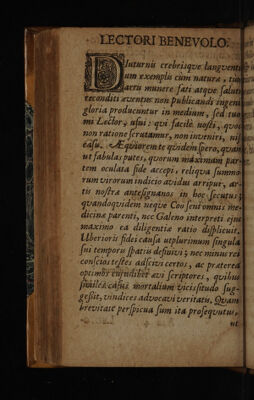 LECTORI BENEVOLO.
Diuturnis crebrisque languenti
um exemplis cum naturæ, tum
artis munere fati atque saluti
reconditi eventus non publicandi ingenii
gloria producuntur in medium, sed tuo
mi Lector, usui: qui facilè nosti, quod
non ratione scrutamur, non inveniri, nisi
casu. Æquiorem te quidem spero, quam
ut fabulas putes, quorum maximam par
tem oculata fide accepi, reliqua summo
rum virorum indicio avidus arripui, ar-
tis nostræ antesignanos in hoc secutus;
quandoquidem neque Coo sent omnis me-
dicina parenti, nec Galeno interpreti ejus
maximo ea diligentiæ ratio displicuit.
Uberioris fidei causa utplurimum singula
sui temporis spatiis definivi; nec minus rei
conscios testes adscivi certos, ac præterea
optimos cujuslibet ævi scriptores, quibus
similes casus mortalium vicissitudo sug-
gessit, vindices advocavi veritatis. Quam
brevitate perspicua sum ita prosequutus,
ut